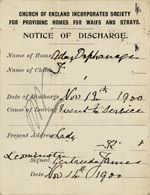 CHURCH OF ENGLAND INCORPORATED SOCIETY
FOR PROVIDING HOMES FOR WAIFS AND STRAYS.
NOTICE OF DISCHARGE.
Name of Home Orphanage
Name of Child
Date of Discharge Nov 12th 1900
Cause of Leaving Event to Service
Present Address
Leominster
Signed Gertrude James
Nov 14th 1900